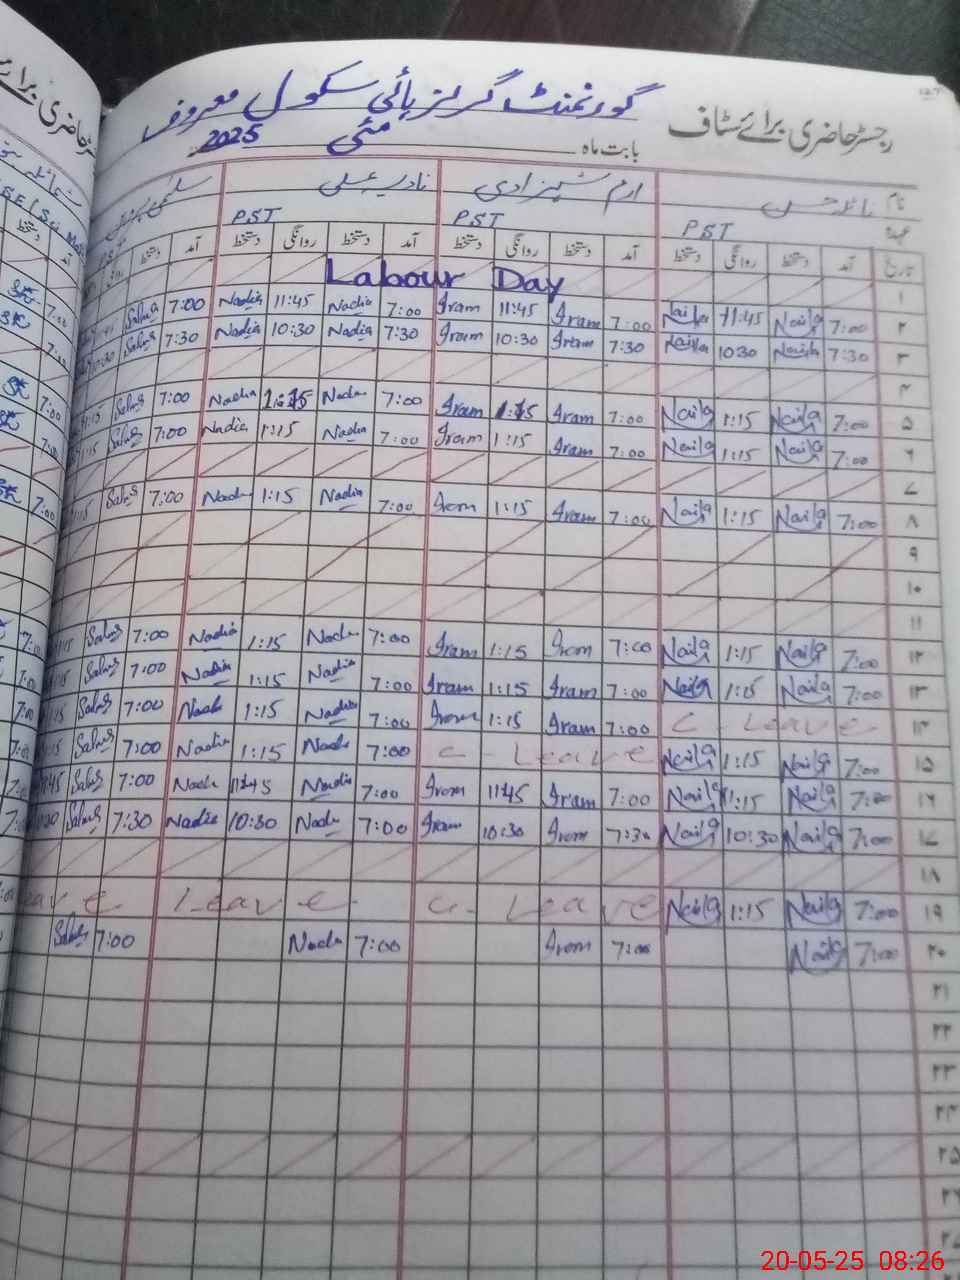 رجسٹر حاضری برائے سٹاف گورنمنٹ گرلز ہائی سکول معروف
بابت ماہ مئی 2025
نام ارم شہزادی نادیہ علی
عہدہ PST PST PST
تاریخ آمد دستخط روانگی دستخط آمد دستخط روانگی دستخط آمد دستخط روانگی دستخط آمد دستخط
۱ Labour Day
۲ 7:00 Naila 11:45 Naila 7:00 Iram 11:45 Iram 7:00 Nadia 11:45 Nadia 7:00 Salma
۳ 7:30 Naila 10:30 Naila 7:30 Iram 10:30 Iram 7:30 Nadia 10:30 Nadia 7:30 Salma
۴
۵ 7:00 Naila 1:15 Naila 7:00 Iram 1:15 Iram 7:00 Nadia 1:15 Nadia 7:00 Salma
۶ 7:00 Naila 1:15 Naila 7:00 Iram 1:15 Iram 7:00 Nadia 1:15 Nadia 7:00 Salma
۷
۸ 7:00 Naila 1:15 Naila 7:00 Iram 1:15 Iram 7:00 Nadia 1:15 Nadia 7:00 Salma
۹
۱۰
۱۱
۱۲ 7:00 Naila 1:15 Naila 7:00 Iram 1:15 Iram 7:00 Nadia 1:15 Nadia 7:00 Salma
۱۳ 7:00 Naila 1:15 Naila 7:00 Iram 1:15 Iram 7:00 Nadia 1:15 Nadia 7:00 Salma
۱۴ C - Leave 7:00 Iram 1:15 Iram 7:00 Nadia 1:15 Nadia 7:00 Salma
۱۵ 7:00 Naila 1:15 Naila C - Leave 7:00 Nadia 1:15 Nadia 7:00 Salma
۱۶ 7:00 Naila 11:15 Naila 7:00 Iram 11:45 Iram 7:00 Nadia 11:45 Nadia 7:00 Salma
۱۷ 7:00 Naila 10:30 Naila 7:30 Iram 10:30 Iram 7:00 Nadia 10:30 Nadia 7:30 Salma
۱۸
۱۹ 7:00 Naila 1:15 Naila C - Leave Leave
۲۰ 7:00 Naila 7:00 Iram 7:00 Nadia 7:00 Salma
۲۱
۲۲
۲۳
۲۴
۲۵
۲۶
20-05-25 08:26